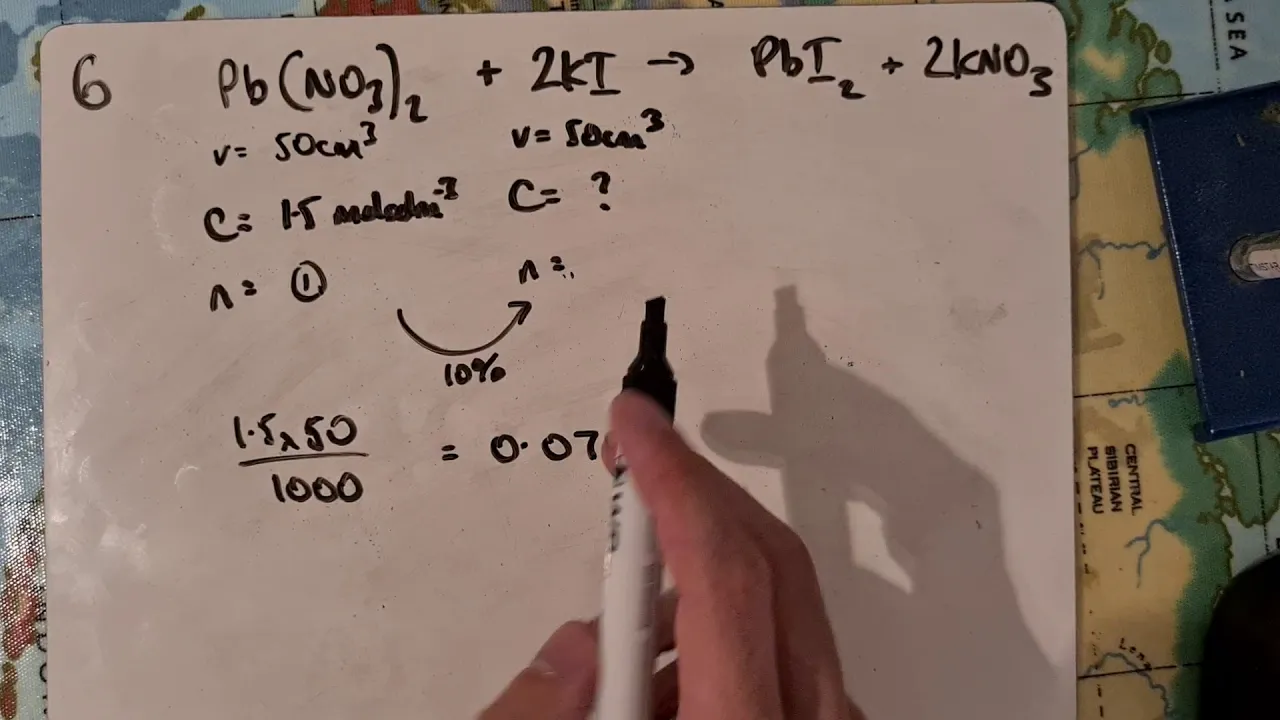 6 Pb(NO3)2 + 2KI → PbI2 + 2KNO3
v= 50cm3 v= 50cm3
C= 1.5 moles dm-3 C= ?
n= ① n=
10%
1.5x50 = 0.07
1000
SEA
CENTRAL
SIBIRIAN
PLATEAU